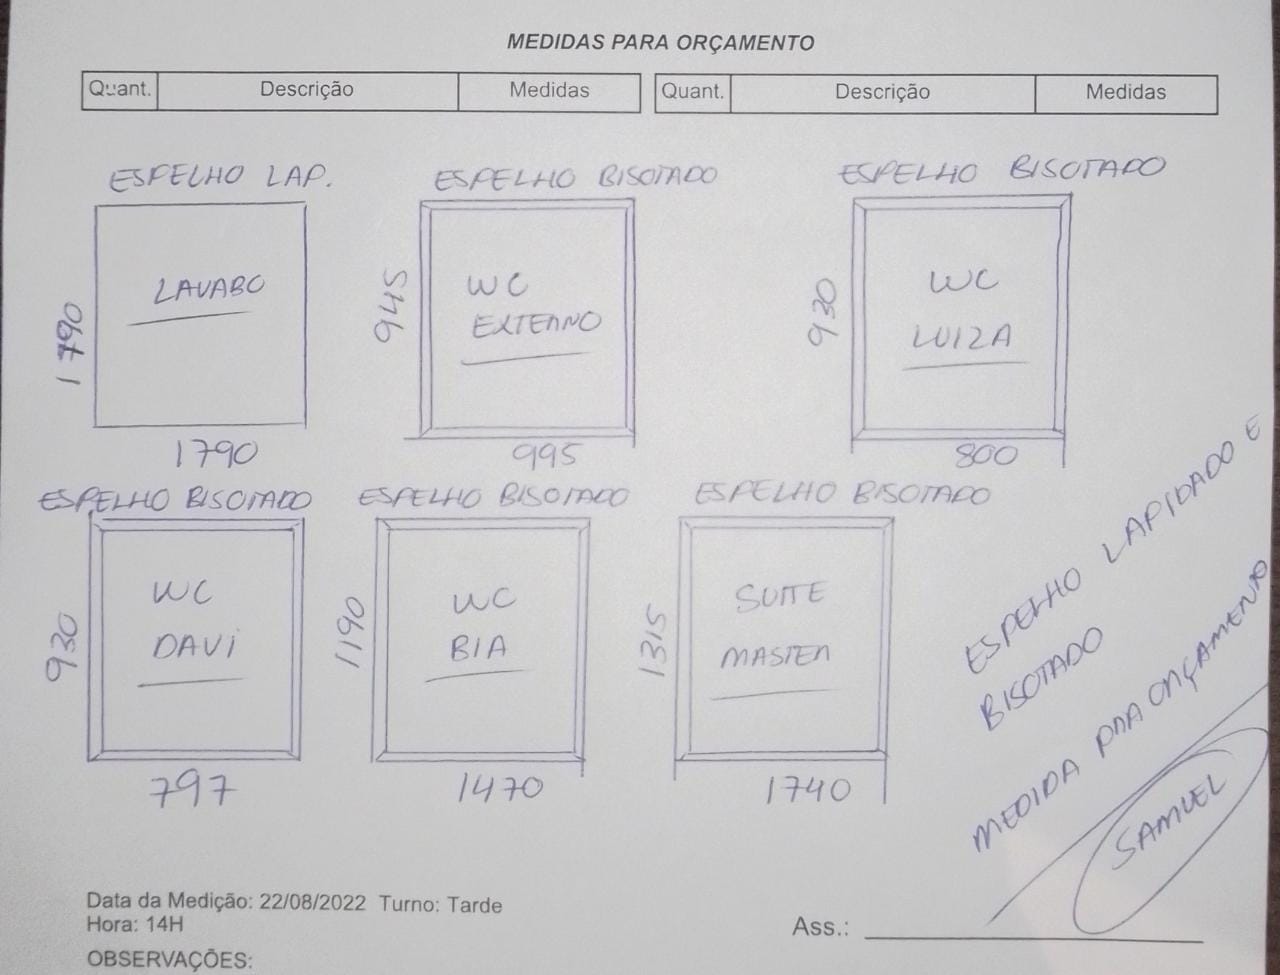 MEDIDAS PARA ORÇAMENTO
Quant. Descrição Medidas Quant. Descrição Medidas
ESPELHO LAP.
LAVABO
1790
1790
ESPELHO BISOTADO
WC
EXTERNO
945
995
ESPELHO BISOTADO
WC
LUIZA
930
800
ESPELHO BISOTADO
WC
DAVI
930
797
ESPELHO BISOTADO
WC
BIA
1190
1470
ESPELHO BISOTADO
SUITE
MASTER
1315
1740
ESPELHO LAPIDADO E
BISOTADO
MEDIDA PRA ORÇAMENTO
SAMUEL
Data da Medição: 22/08/2022 Turno: Tarde
Hora: 14H
Ass.:
OBSERVAÇÕES: